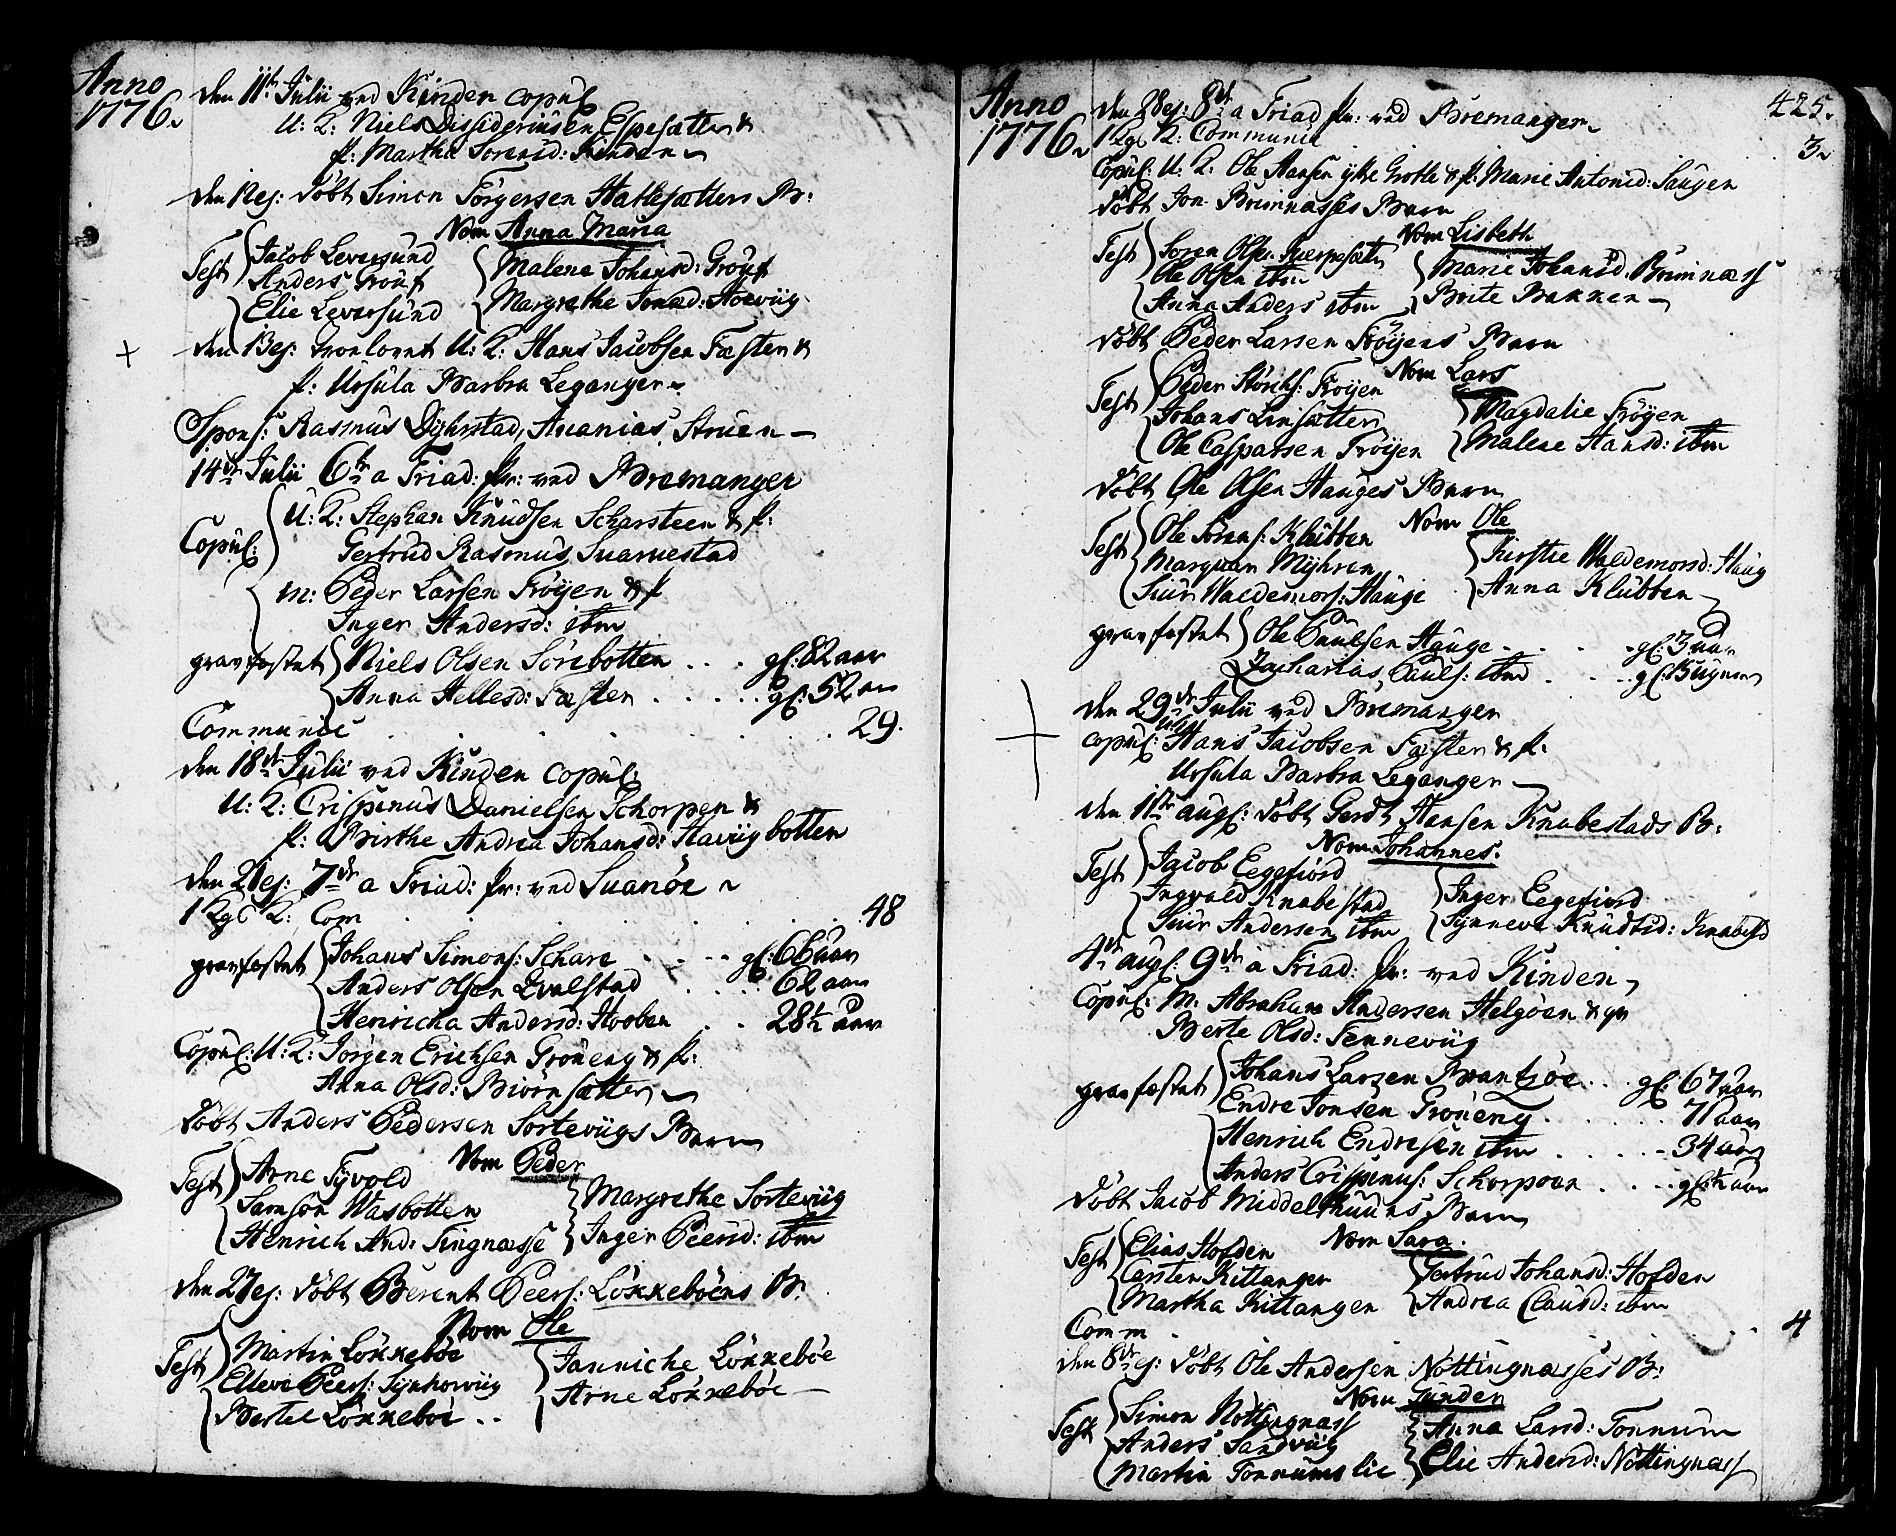 Anno
1776.
den 11te Julii ved Kinden copul:
U: K: Niels Dissideriusen Espesætter &
p: Martha Sorensd: Kinden
den 12 ej: döbt Simon Törgersen Hatlesætters B:
Nom Anna Maria
Test Jacob Leversund
Anders Grouf
Elie Leversund
Malene Johansd: Grouf
Margrethe Jonæd: Hoeviig
den 13 ej: trolovet U: K: Hans Jacobsen Fæsten &
p: Ursula Barbra Leganger
Spons: Rasmus Dyhrstad, Ananias Struen
14de Julii 6te a Triad: pr: ved Bremanger
Copul: U: K: Stephan Knudsen Scharsteen & p:
Gertrud Rasmus, Svarvestad
m: Peder Larsen Fröyen & p
Inger Andersd: ibm
gravfæstet Niels Olsen Sörebotten . . . gl: 82 aar
Anna Hellesd: Fæsten . . . . . gl: 52 aar
Communic . . . . . . 29.
den 18de Julii ved Kinden copul:
U: K: Crispinus Danielsen Schorpen &
p: Birthe Andrea Johansd: Haviigbotten
den 21 ej: 7de a Triad: pr: ved Svanöe
1 Kge K: Com . . . . . . 48
gravfæstet Johans Simons: Schare . . . . gl: 66 aar
Anders Olsen Qvalstad . . . . 62 aar
Henricha Andersd: Hooben . . 28½ aar
Copul: U: K: Jörgen Erichsen Gröneng & p:
Anna Olsd: Biörnsætter
döbt Anders Pedersen Sorteviigs Barn
Nom Peder
Test Arne Tyvold
Samson Wasbotten
Henrich And: Tingnæsse
Margrethe Sorteviig
Inger Peersd: ibm
den 27 ej: döbt Berent Peers: Lökkeböens B:
Nom Ole
Test Martin Lökkeböe
Elleve Peers:
Bertel Lökkeböe . .
Jannicke Lökkeböe
Arne Lökkeböe
425.
Anno
1776
den 28 ej: 8de a Triad pr: ved Bremanger
1 Kge K: Communic . . 3
Copul: U: K: Ole Hansen ytre Grotle & p: Marie Antonid: Saugen
döbt Jon Brimnæsses Barn
Nom Lisbeth
Test Soren Olsen
Ole Olsen ibm
Anna Anders ibm
Marie Johansd: Brimnæss
Brite Bakken
döbt Peder Larsen Fröyens Barn
Nom Lars
Test Peder Förchs: Fröyen
Johans Lensætter
Ole Caspersen Fröyen
Magdalie Fröyen
Malene Hansd: ibm
döbt Ole Olsen Hauges Barn
Nom Ole
Test Ole Sörens: Klubben
Marquar Myhren
Siur Waldemors: Hauge
Kirstie Waldemorsd: Haug
Anna Klubben
gravfæstet Ole Paulsen Hauge . . . . . gl: 3 aar
Zacharias Pauls: ibm . . . . gl: 13 ugver
den 29de Julii ved Bremanger
copul: Hans Jacobsen Fæsten & p:
Ursula Barbra Leganger
den 1ste augs: döbt Gerdt Hansen Knabestads B:
Nom Johannes.
Test Jacob Eegefiord
Ingvald Knabestad
Siur Andersen ibm
Inger Eegefiord
Synneve Knudtsd: Knabest
4de augs: 9de a Triad: pr: ved Kinden
Copul: M. Abraham Andersen Helgöen & qv
Berte Olsd: Tenneviig
gravfæstet Johans Larsen Brantzöe . . . gl: 67 aar
Endre Jonsen Gröneng . . . . . . 71 aar
Henrich Endresen ibm . . . . . 34 aar
Anders Crispinus: Schorpoen . . . . gl: ½ aar
döbt Jacob Middelthuuns Barn
Nom Sara.
Test Elias Hofden
Carsten Kitlanger
Martha Kittangen
Gertrud Johansd: Hofden
Andrea Clausd: ibm
Comm . . . . 4
den 8de ej: döbt Ole Andersen Nöttingnæsses B:
Nom Gunder
Test Simon Nöttingnæss
Anders Sandviig
Martin Tonnumslie
Anna Larsd: Tonnum
Elie Andersd: Nöttingnæss